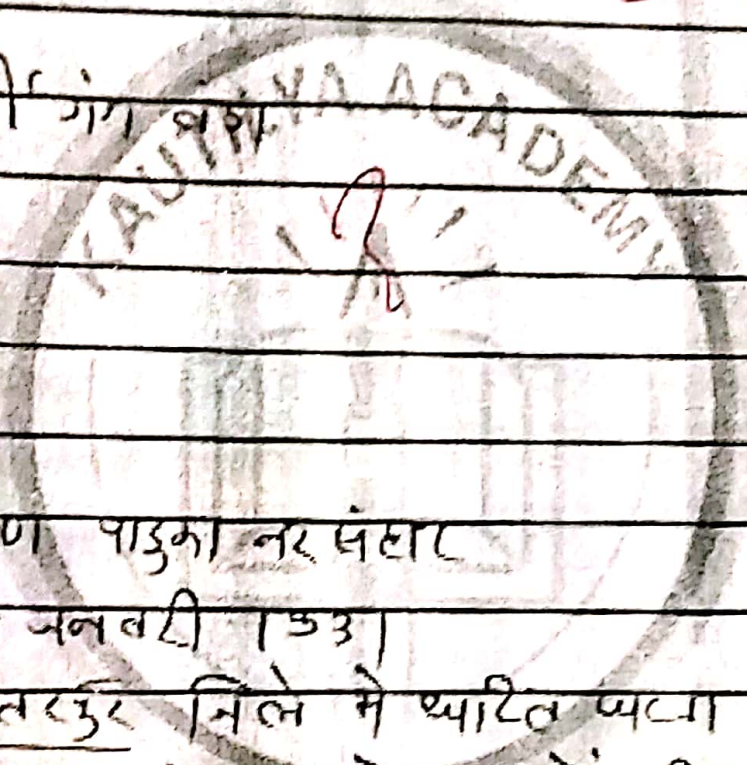 र्वी गंग वंश
KAUTILYA ACADEMY
ण पादुका नर संहार
जनवरी 1931
तरपुर जिले मे घटित घटना